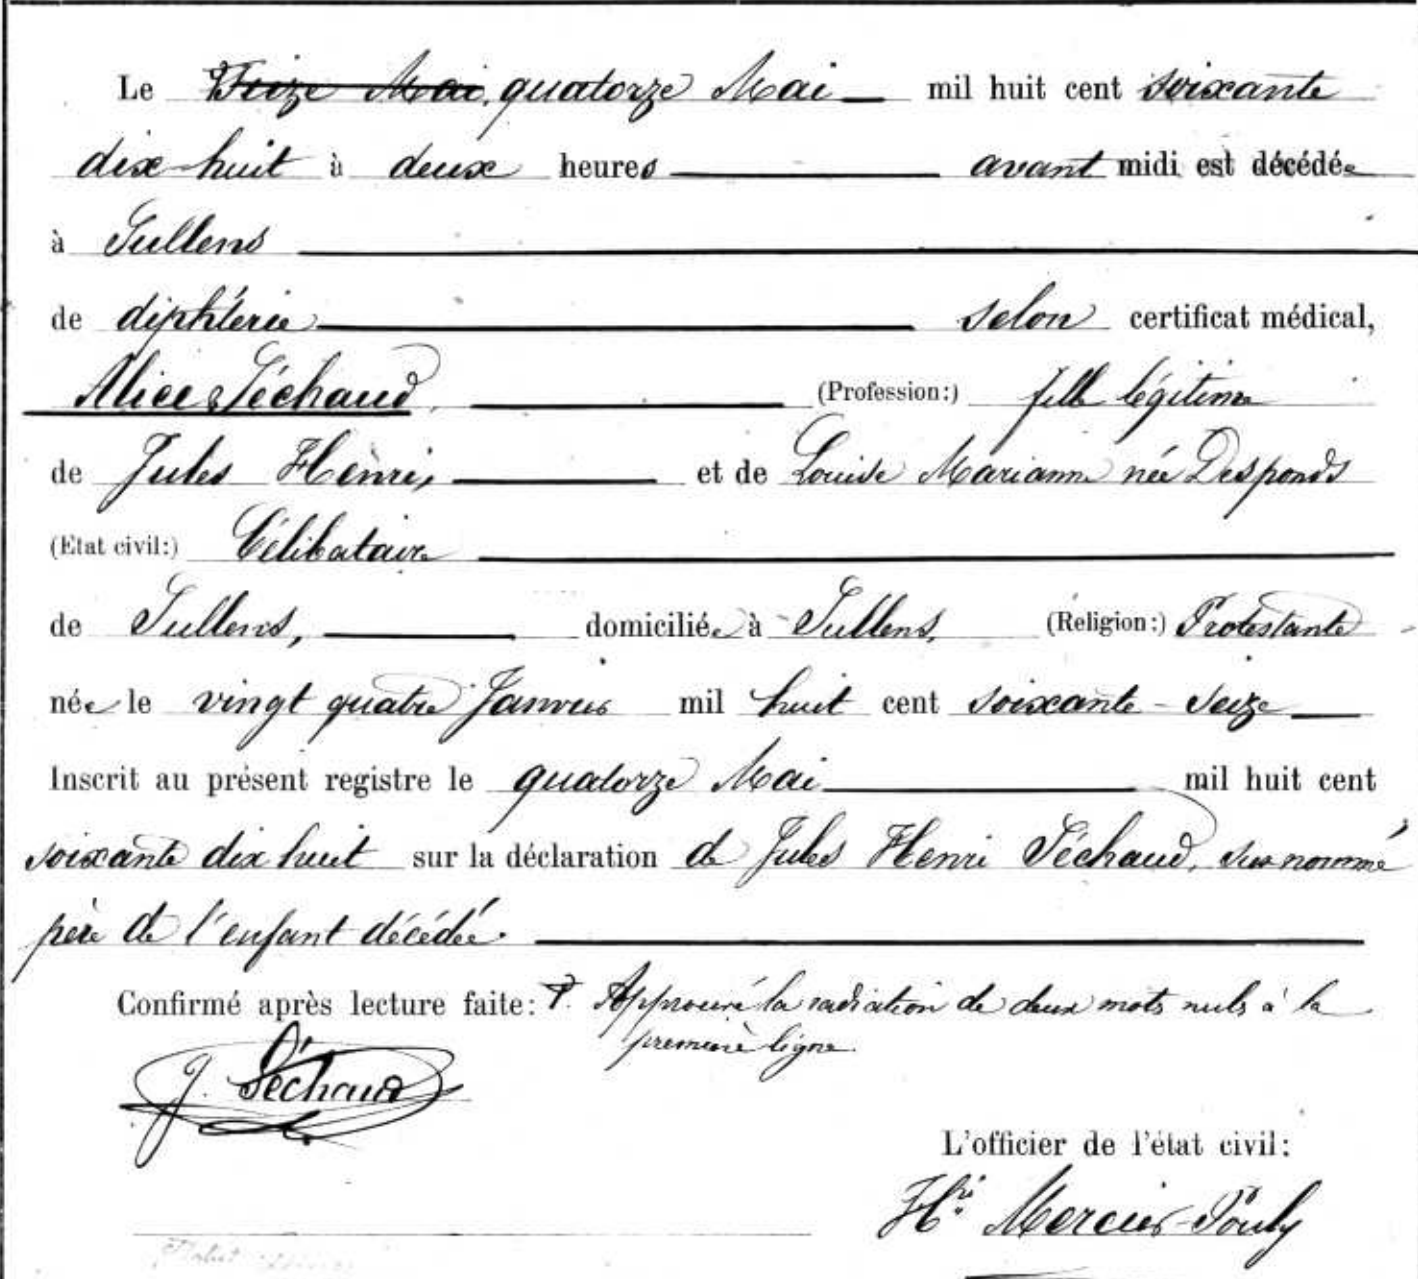 Le Treize Mai, quatorze Mai mil huit cent soixante
dix-huit à deux heures avant midi est décédée
à Sullens
de diphtérie selon certificat médical,
Alice Séchaud, (Profession:) fille légitime
de Jules Henri, et de Louise Marianne née Desponds
(Etat civil:) Célibataire
de Sullens, domiciliée à Sullens, (Religion:) Protestante
née le vingt quatre Janvier mil huit cent soixante-seize
Inscrit au présent registre le quatorze Mai mil huit cent
soixante dix huit sur la déclaration de Jules Henri Séchaud, sus nommé
père de l'enfant décédée.
Confirmé après lecture faite: Approuvé la radiation de deux mots nuls à la
première ligne.
J. Séchaud
L'officier de l'état civil:
Hri Mercier-Pouly